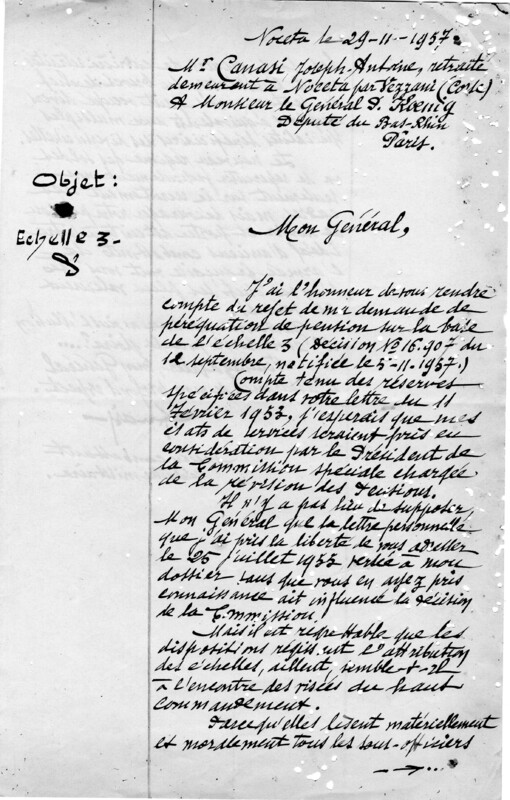 Noceta le 29-11-1957.
Mr Canasi Joseph-Antoine, retraité
demeurant à Noceta par Vezzani (Corse)
A Monsieur le Général d. Kœnig
Député du Bas-Rhin
Paris.
Objet :
Echelle 3-
Mon Général,
J'ai l'honneur de vous rendre
compte du rejet de ma demande de
péréquation de pension sur la base
de l'échelle 3 (Décision No 16.907 du
12 septembre, notifiée le 5-11-1957.)
Compte tenu des réserves
spécifiées dans votre lettre du 11
février 1953, j'espérais que mes
états de services seraient pris en
considération par le Président de
la Commission spéciale chargée
de la révision des décisions.
Il n'y a pas lieu de supposer,
Mon Général que la lettre personnelle
que j'ai pris la liberté de vous adresser
le 25 juillet 1955 versée à mon
dossier sans que vous en ayez pris
connaissance ait influencé la décision
de la Commission!
Mais il est regrettable que les
dispositions régissant l'attribution
des échelles, aillent, semble-t-il
à l'encontre des visées du haut
commandement.
Parce qu'elles lèsent matériellement
et moralement tous les sous-officiers